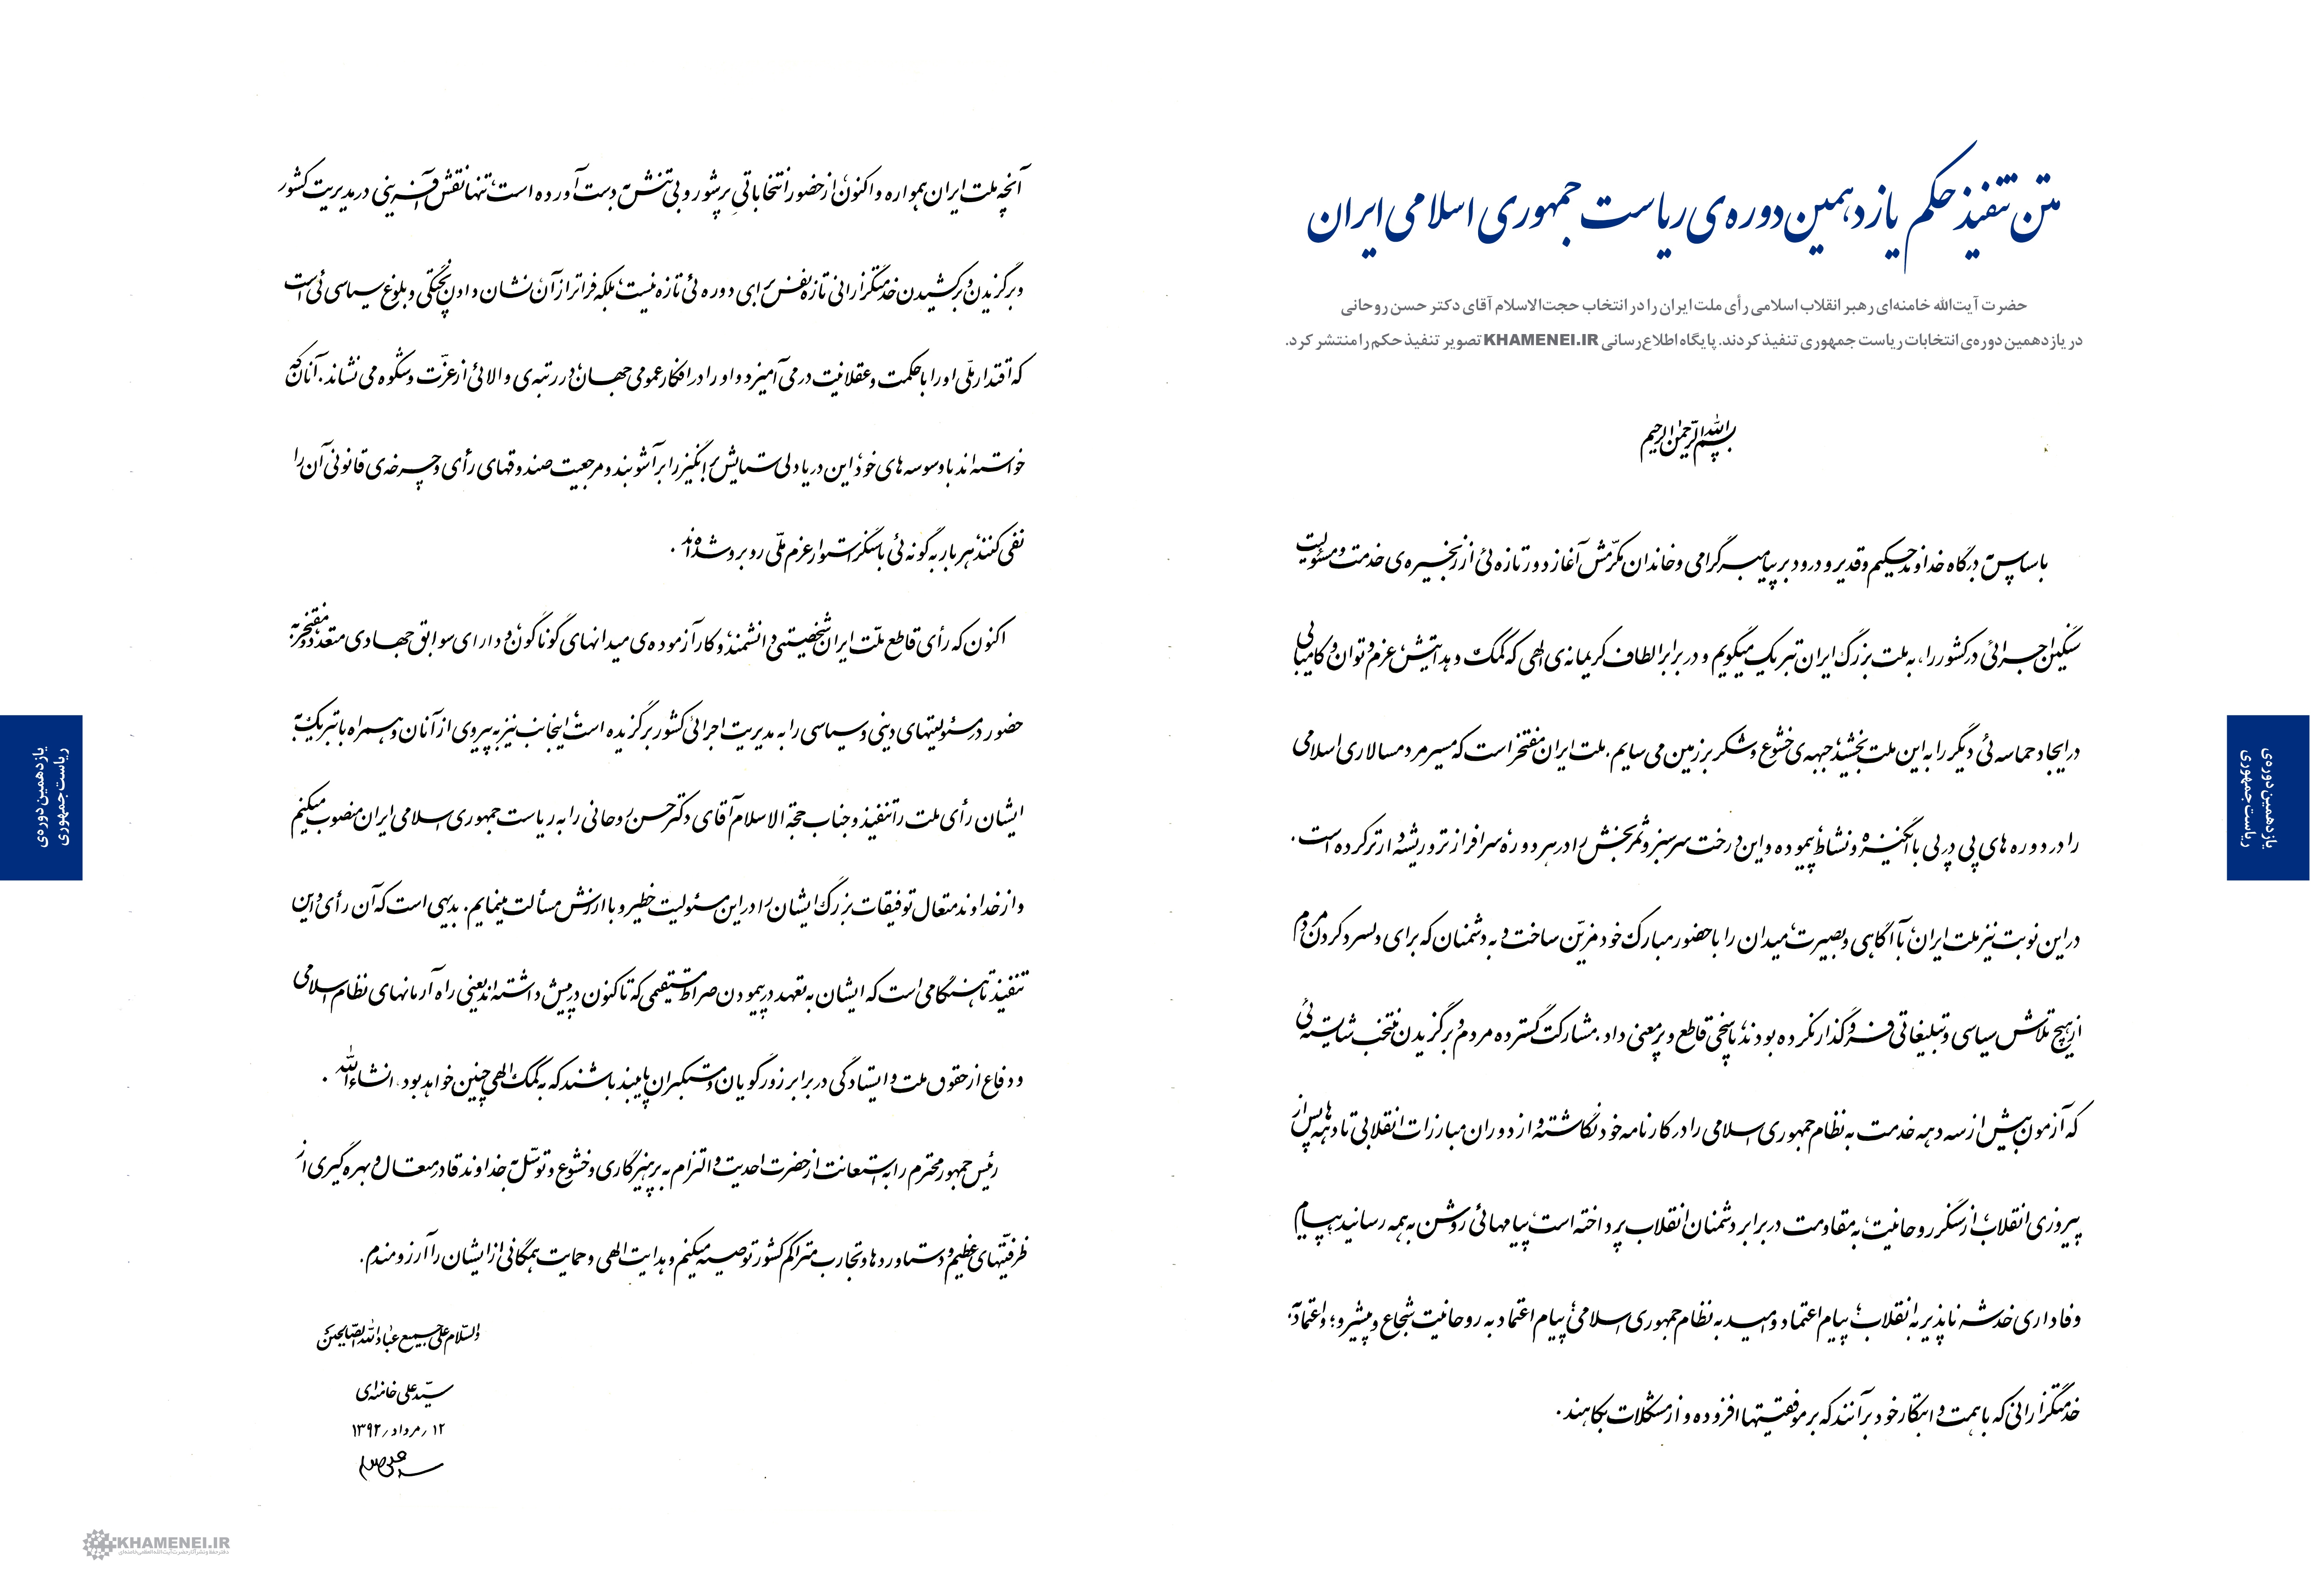 متن تنفیذ حکم یازدهمین دوره‌ی ریاست جمهوری اسلامی ایران
حضرت آیت‌الله خامنه‌ای رهبر انقلاب اسلامی رأی ملت ایران را در انتخاب حجت‌الاسلام آقای دکتر حسن روحانی
در یازدهمین دوره‌ی انتخابات ریاست جمهوری تنفیذ کردند. پایگاه اطلاع‌رسانی KHAMENEI.IR تصویر تنفیذ حکم را منتشر کرد.
بسم الله الرّحمن الرحیم
با سپاس به درگاه خداوند حکیم و قدیر و درود بر پیامبر گرامی و خاندان مکرّمش آغاز دور تازه‌ئی از زنجیره‌ی خدمت و مسئولیت
سنگین اجرائی در کشور را، به ملت بزرگ ایران تبریک میگویم و در برابر الطاف کریمانه‌ی الهی که کمک و هدایتش، عزم و توان و کامیابی
در ایجاد حماسه‌ئی دیگر را به این ملت بخشید، جبهه‌ی خشوع و شکر بر زمین می‌سایم. ملت ایران مفتخر است که مسیر مردمسالاری اسلامی
را در دوره‌های پی در پی با انگیزه و نشاط پیموده و این درخت سرسبز و ثمربخش را در هر دوره، سرافرازتر و ریشه‌دارتر کرده است.
در این نوبت نیز ملت ایران، با آگاهی و بصیرت، میدان را با حضور مبارک خود مزیّن ساخت و به دشمنان که برای دلسرد کردن مردم
از هیچ تلاش سیاسی و تبلیغاتی فروگذار نکرده بودند، پاسخی قاطع و پرمعنی داد. مشارکت گسترده مردم و برگزیدن منتخب شایسته‌ئی
که آزمون بیش از سه دهه خدمت به نظام جمهوری اسلامی را در کارنامه خود نگاشته و از دوران مبارزات انقلابی تا دهه‌ها پس از
پیروزی انقلاب، از سنگر روحانیت، به مقاومت در برابر دشمنان انقلاب پرداخته است، پیامهائی روشن به همه رسانید: پیام
وفاداری خدشه ناپذیر به انقلاب؛ پیام اعتماد و امید به نظام جمهوری اسلامی؛ پیام اعتماد به روحانیت شجاع و پیشرو؛ و اعتماد به
خدمتگزارانی که با همت و ابتکار خود برآنند که بر موفقیتها افزوده و از مشکلات بکاهند.
آنچه ملت ایران همواره و اکنون، از حضور انتخاباتیِ پرشور و بی‌تنش به دست آورده است، تنها نقش‌آفرینی در مدیریت کشور
و برگزیدن و برکشیدن خدمتگزارانی تازه نفس برای دوره‌ئی تازه نیست، بلکه فراتر از آن، نشان دادن پختگی و بلوغ سیاسی‌ئی است
که اقتدار ملّی او را با حکمت و عقلانیت درمی‌آمیزد و او را در افکار عمومی جهان، در رتبه‌ی والائی از عزّت و شکوه می‌نشاند. آنان که
خواسته‌اند با وسوسه‌های خود، این دریادلی ستایش برانگیز را برآشوبند و مرجعیت صندوقهای رأی و چرخه‌ی قانونی آن را
نفی کنند، هربار به گونه‌ئی با سنگر استوار عزم ملّی روبرو شده‌اند.
اکنون که رأی قاطع ملّت ایران، شخصیتی دانشمند، و کارآزموده‌ی میدانهای گوناگون، و دارای سوابق جهادی متعدد و مفتخر به
حضور در مسئولیتهای دینی و سیاسی را به مدیریت اجرائی کشور برگزیده است، اینجانب نیز به پیروی از آنان و همراه با تبریک به
ایشان رأی ملت را تنفیذ و جناب حجة الاسلام آقای دکتر حسن روحانی را به ریاست جمهوری اسلامی ایران منصوب میکنم
و از خداوند متعال توفیقات بزرگ ایشان را در این مسئولیت خطیر و با ارزش مسألت مینمایم. بدیهی است که آن رأی و این
تنفیذ تا هنگامی است که ایشان به تعهد در پیمودن صراط مستقیمی که تاکنون در پیش داشته‌اند یعنی راه آرمانهای نظام اسلامی
و دفاع از حقوق ملت و ایستادگی در برابر زورگویان و مستکبران پایبند باشند که به کمک الهی چنین خواهد بود. انشاءالله.
رئیس جمهور محترم را به استعانت از حضرت احدیت و التزام به پرهیزگاری و خشوع و توسّل به خداوند قادر متعال و بهره‌گیری از
ظرفیّتهای عظیم و دستاوردها و تجارب متراکم کشور توصیه میکنم و هدایت الهی و حمایت همگانی از ایشان را آرزومندم.
والسّلام علی جمیع عباد الله الصّالحین
سیّد علی خامنه‌ای
۱۲ / مرداد / ۱۳۹۲
یازدهمین دوره‌ی
ریاست جمهوری
یازدهمین دوره‌ی
ریاست جمهوری
KHAMENEI.IR
دفتر حفظ و نشر آثار حضرت آیت‌الله‌العظمی خامنه‌ای